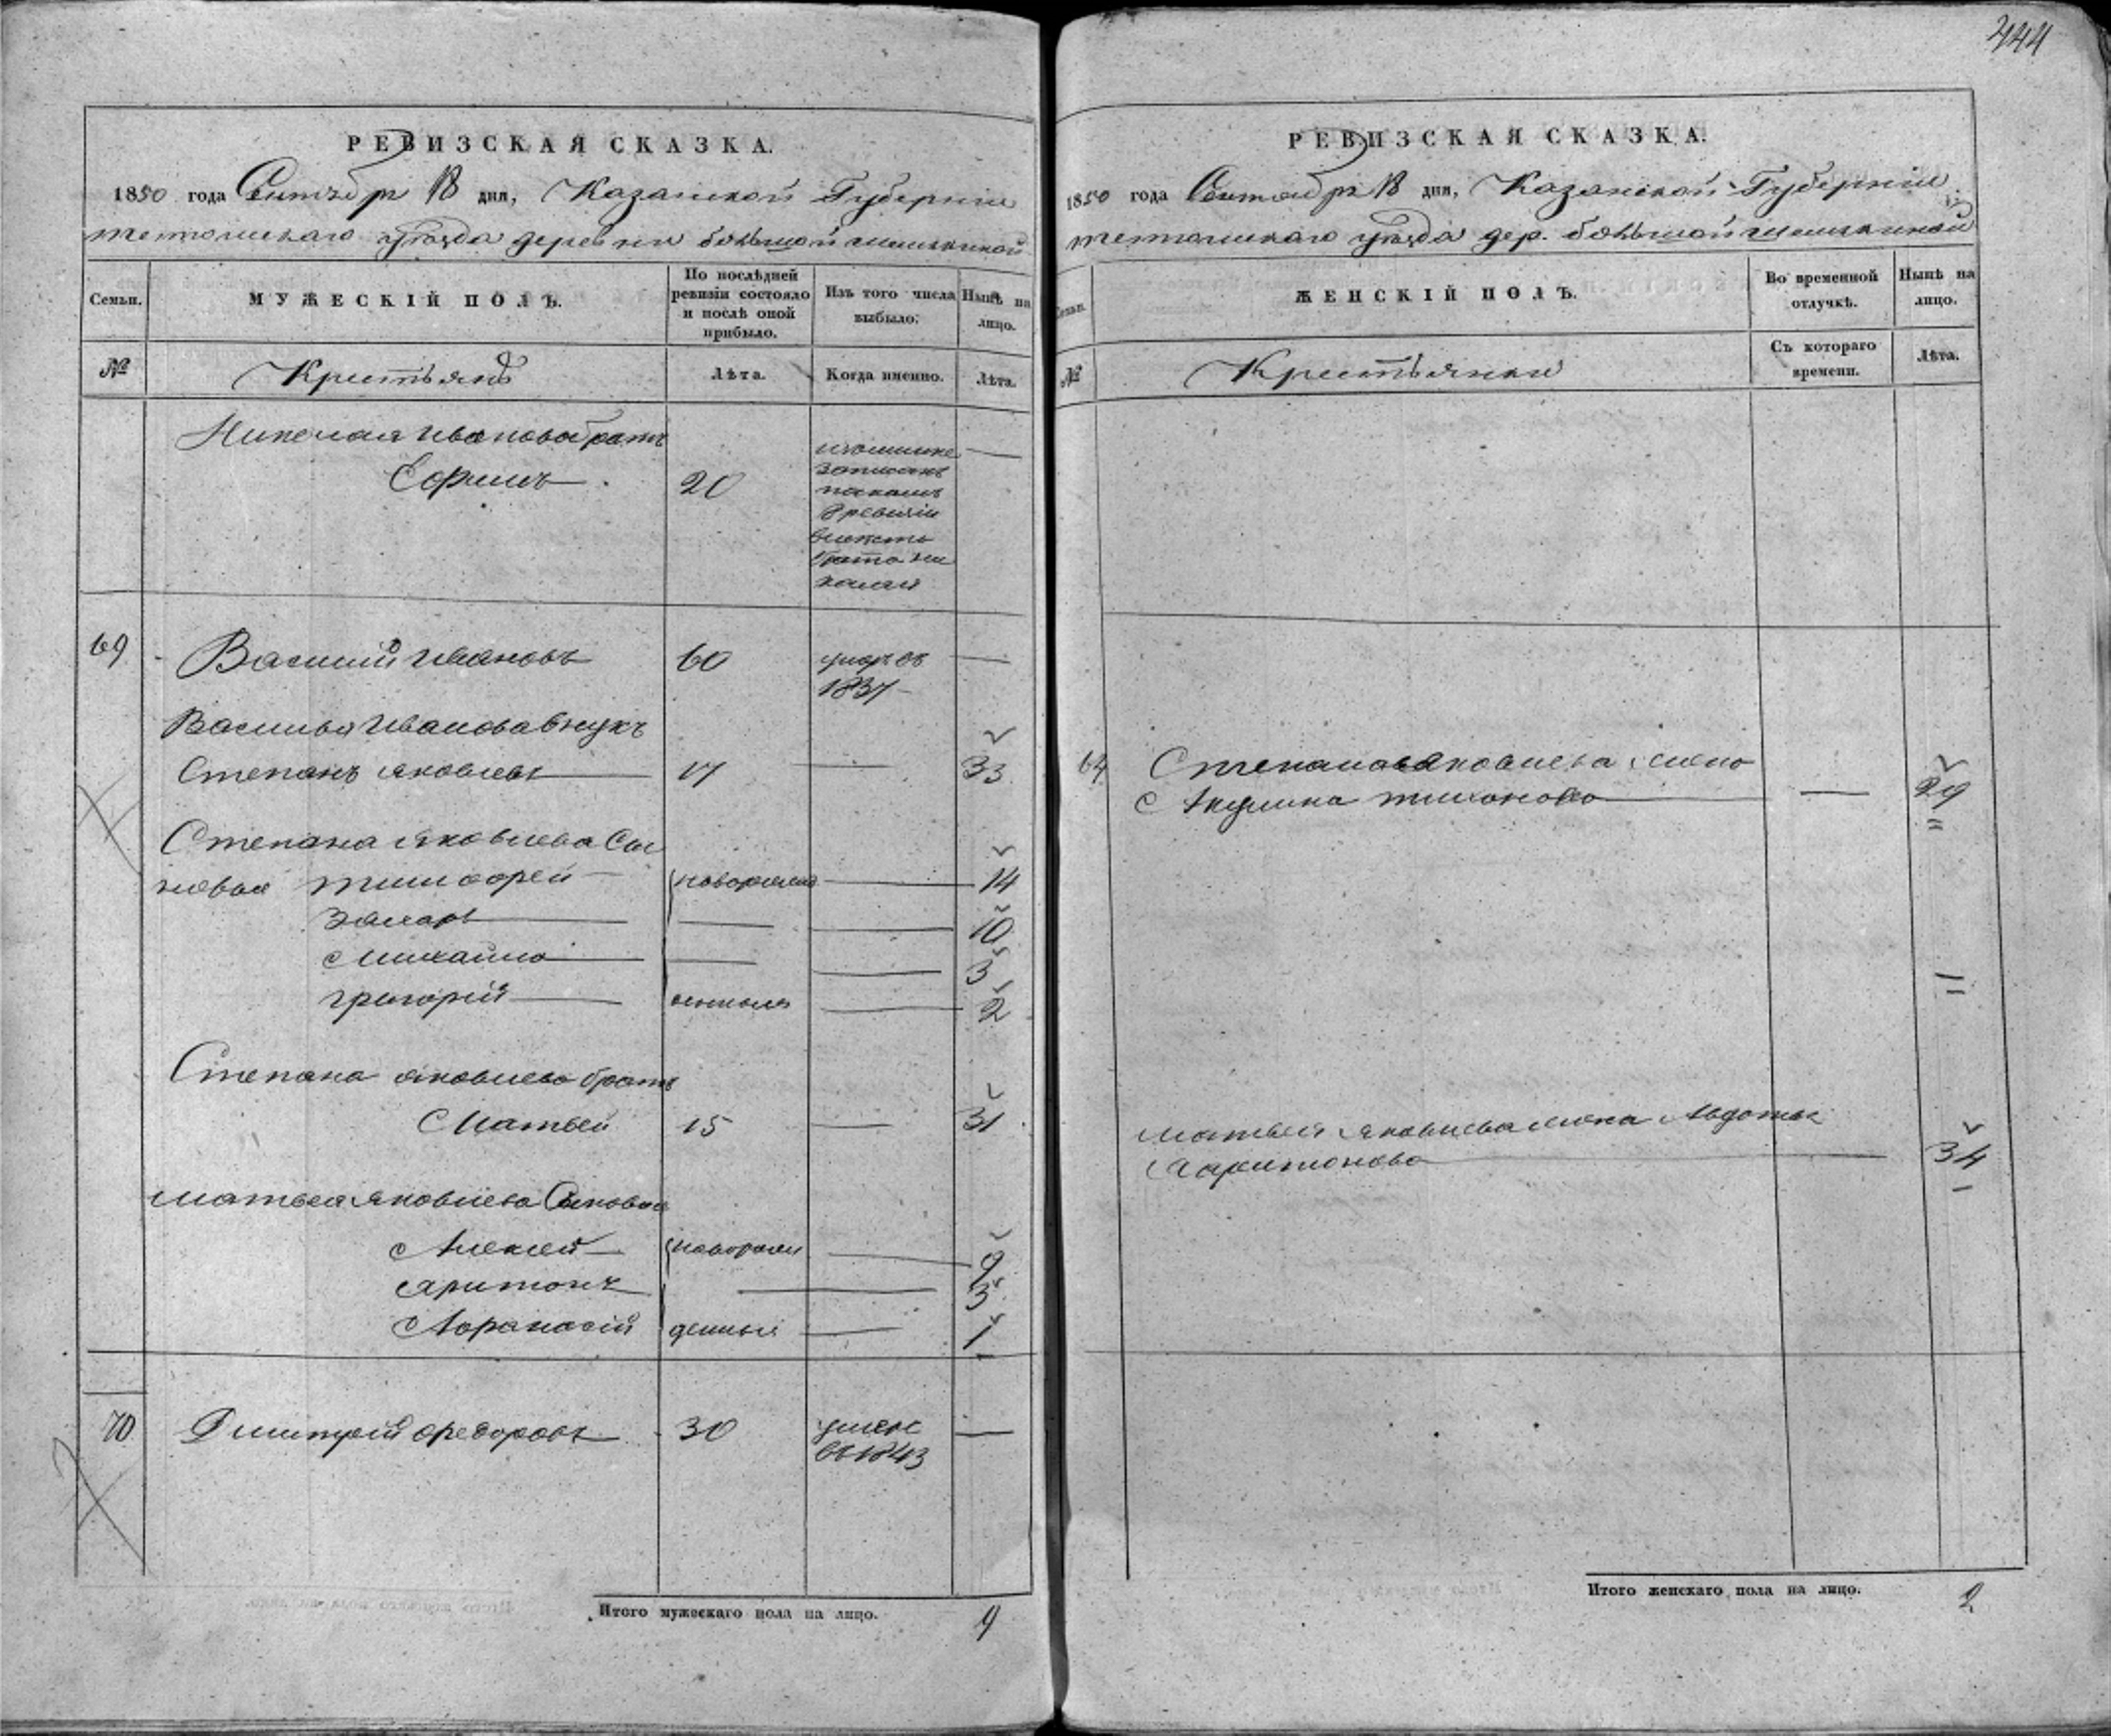 444
РЕВИЗСКАЯ СКАЗКА.
1850 года Сентября 18 дня, Казанской Губернии
тетюшскаго уѣзда деревни большой шемякиной
Семьи.
МУЖЕСКІЙ ПОЛЪ.
По послѣдней ревизіи состояло и послѣ оной прибыло.
Изъ того числа выбыло.
Нынѣ на лицо.
№
Крестьянъ
Лѣта.
Когда именно.
Лѣта.
Николая Иванова братъ
Ефимъ 20
записанъ
ревизіи
вместо
брата Ни
колая
69 Василий Ивановъ 60 умеръ въ —
1837
Василья Иванова внукъ
Степанъ Яковлевъ 17 — 33
Степана Яковлева Сы
новья тимофей новорожд — 14
Захаръ — — 10
Михайло — — 3
григорий — 2
Степана Яковлева братъ
Матвей 15 — 31
матвея Яковлева Сыновья
Алексей новорож — 9
Харитонъ — 3
Афанасій денныя — 1
70 Димитрей Федоровъ 30 умеръ —
въ 1843
Итого мужескаго пола на лицо. 9
РЕВИЗСКАЯ СКАЗКА.
1850 года Сентября 18 дня, Казанской Губерніи
тетюшскаго уѣзда дер. большой шемякиной
Семьи.
ЖЕНСКІЙ ПОЛЪ.
Во временной отлучкѣ.
Нынѣ на лицо.
№
Крестьянки
Съ котораго времени.
Лѣта.
69 Степана Яковлева жена
Акулина тихонова — 29
матвея Яковлева жена Авдотья
Харитонова — 34
Итого женскаго пола на лицо. 2